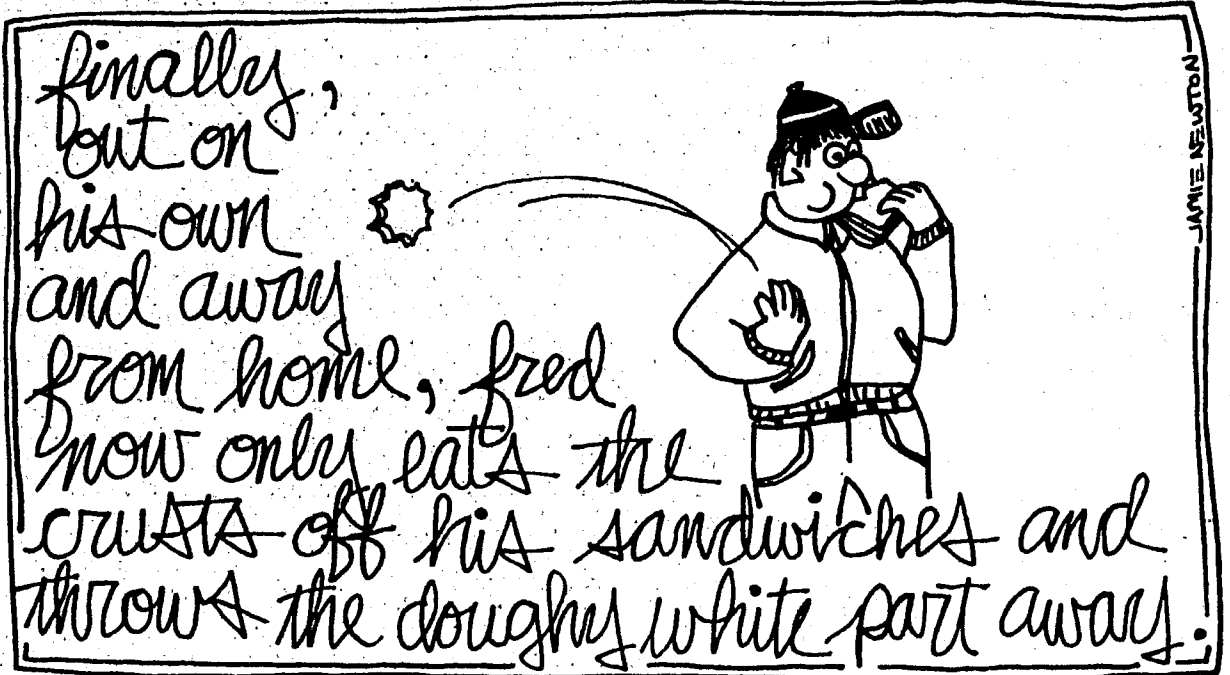 finally,
out on
his own
and away
from home, fred
now only eats the
crusts off his sandwiches and
throws the doughy white part away.
JAMIE NEWTON